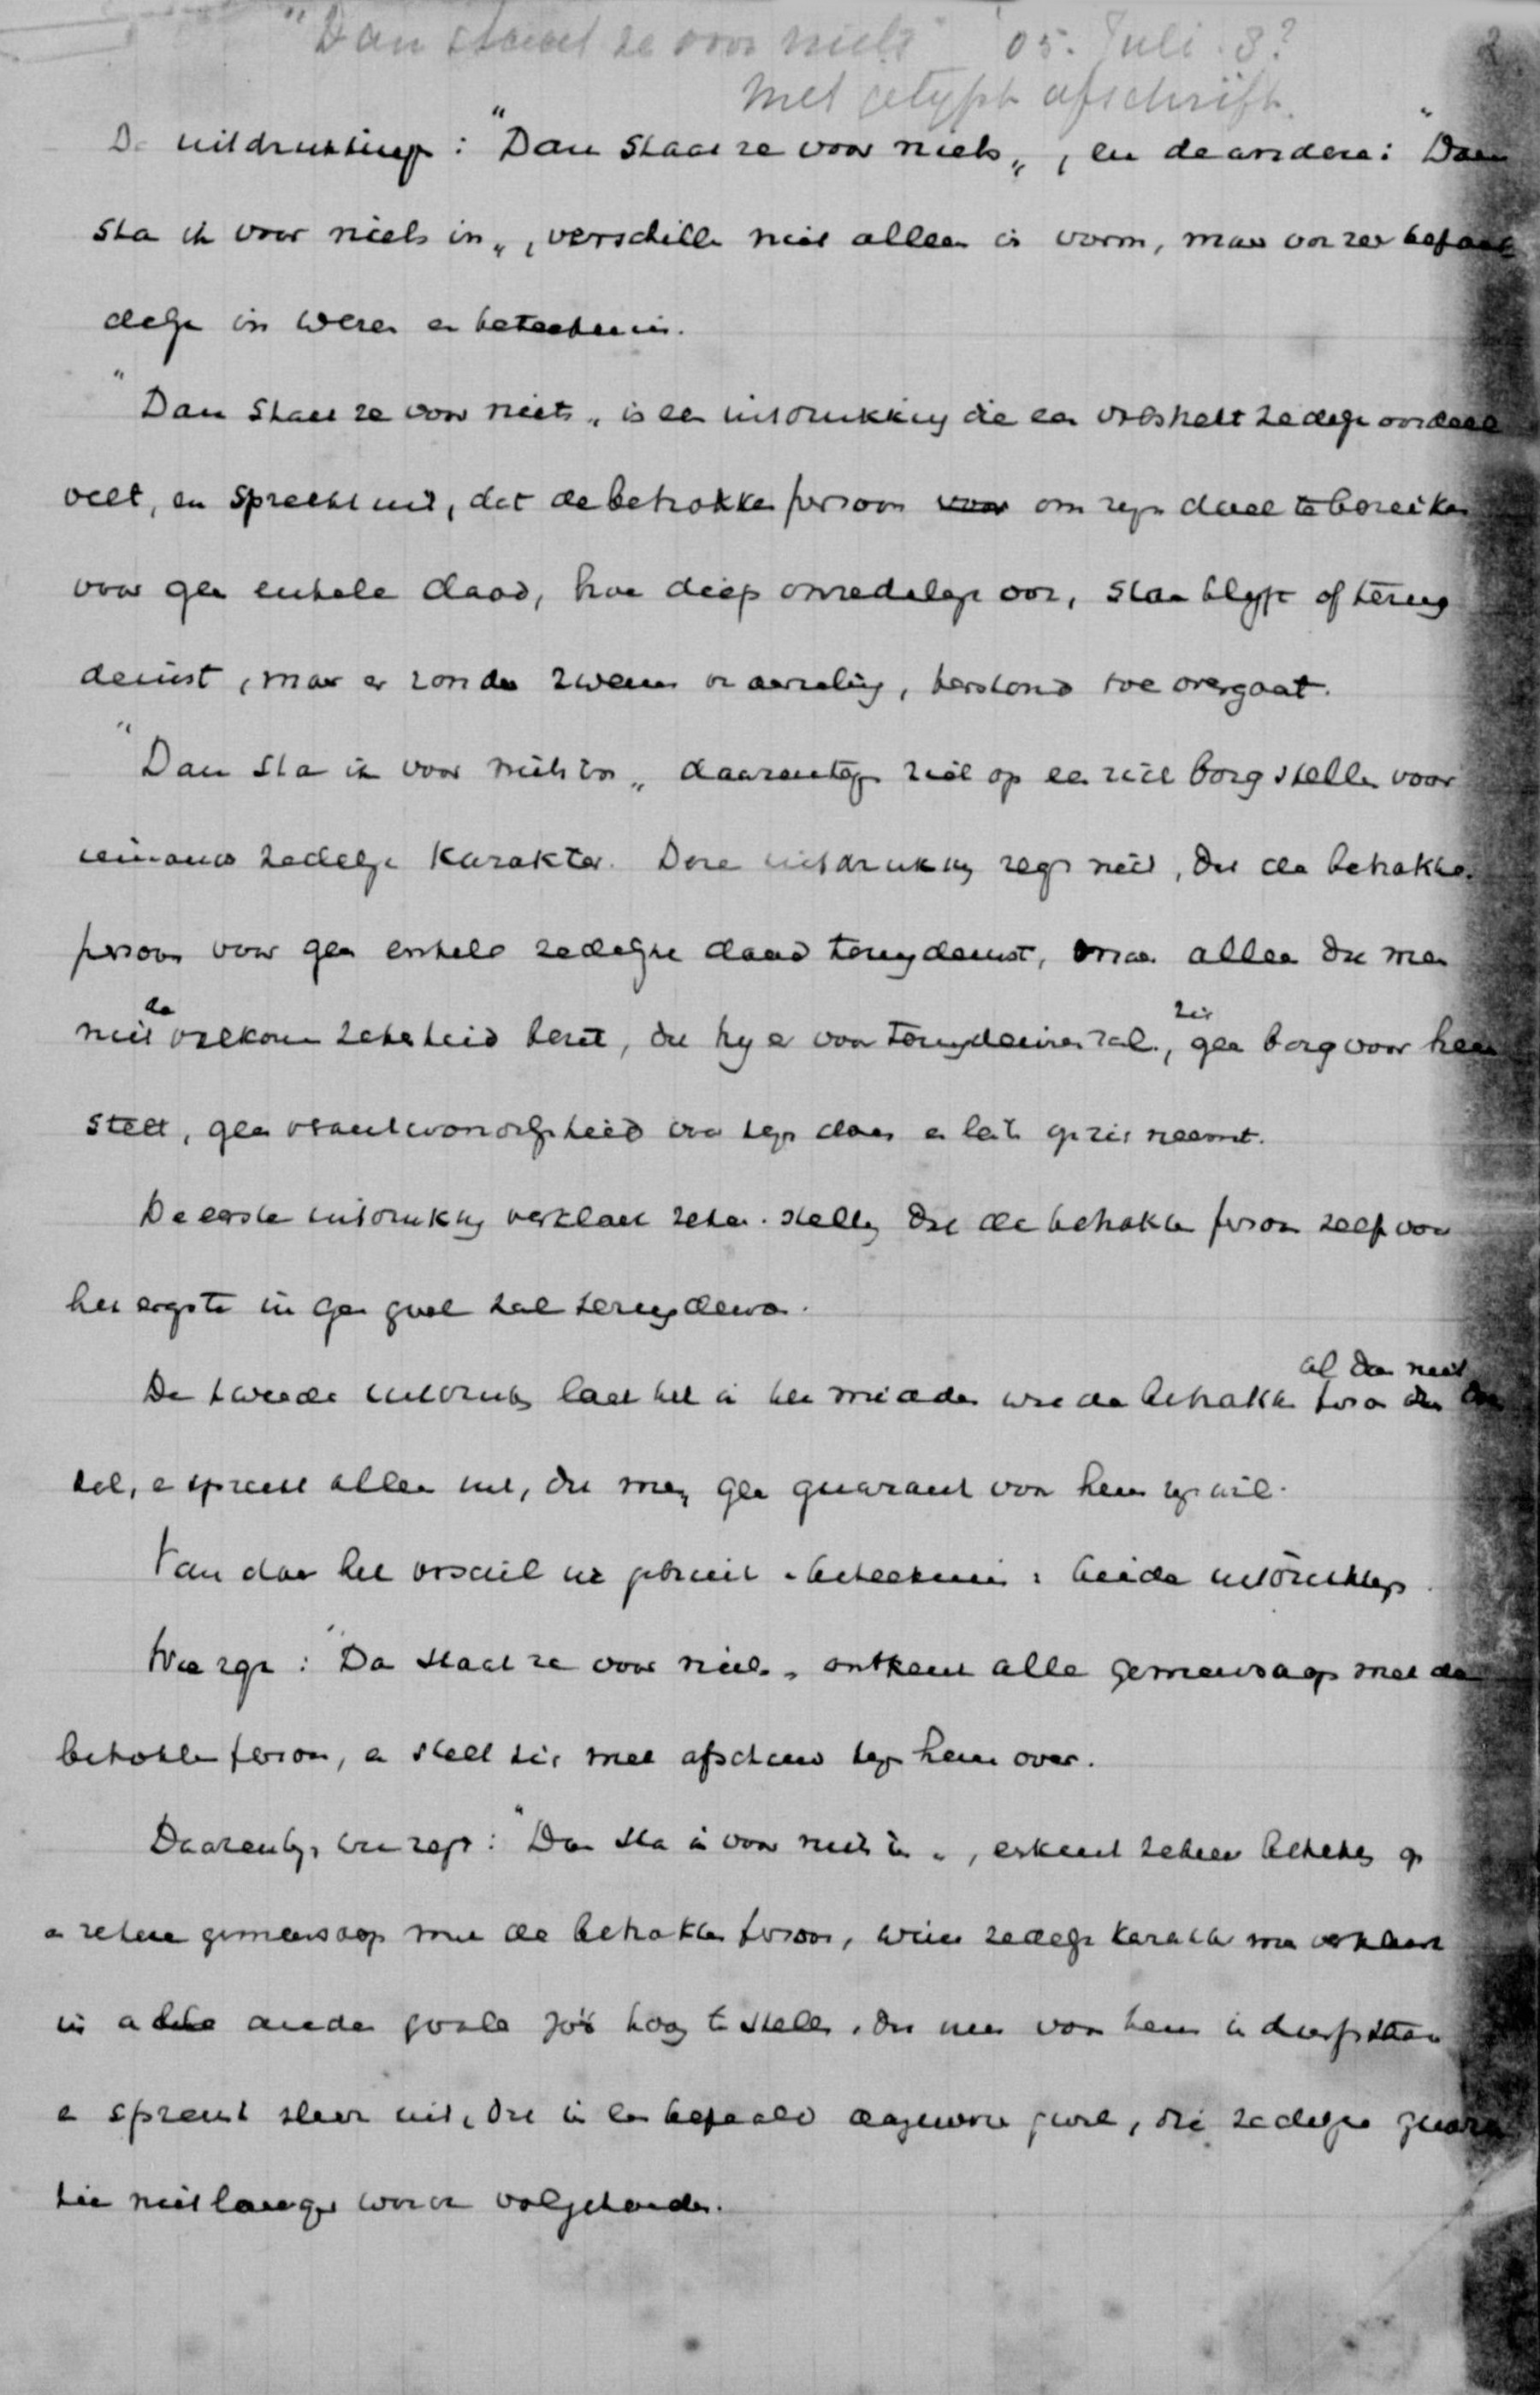 "Dan staat ze voor niets" 05. Juli. 3? 2
Met getypt afschrift.
De uitdrukking: "Dan staat ze voor niets„, en de andere: "Dan
sta ik voor niets in„, verschillen niet alleen in vorm, maar
in wezen en beteekenis.
"Dan staat ze voor niets„ is een uitdrukking die een zedelijk oordeel
velt, en spreekt uit, dat de betrokken persoon voor om zijn doel te bereiken
voor geen enkele daad, hoe diep onzedelijk ook, staan blijft of terug
deinst, maar er zonder zweem van aarzeling, terstond toe overgaat.
"Dan sta ik voor niets in„ daarentegen ziet op een zich borg stellen voor
iemands zedelijk karakter. Deze uitdrukking zegt niet, dat de betrokken
persoon voor geen enkele zedelijke daad terugdeinst, maar alleen dat men
niet de volkomen zekerheid bezit, dat hij er voor terugdeinzen zal, zich geen borg voor hem
stelt, geen verantwoordelijkheid voor zijn doen en laten op zich neemt.
De eerste uitdrukking verklaart zeker. stellig dat de betrokken persoon zelf voor
het ergste in geen geval zal terugdeinzen.
De tweede uitdrukking laat het in het midden wat de betrokken persoon al dan niet doen
zal, en spreekt alleen uit, dat men geen guarant voor hem zijn wil.
Van daar het verschil in gebruik en beteekenis in beide uitdrukkingen.
Wie zegt: "Dan staat ze voor niets„ ontkent alle gemeenschap met de
betrokken persoon, en stelt zich met afschuw tegen hem over.
Daarentegen wie zegt: "Dan sta ik voor niets in„, erkent zekere betrekking op
en zekere gemeenschap met de betrokken persoon, wiens zedelijk karakter men verklaart
in alle andere gevallen zóó hoog te stellen, dat men voor hem in durft staan
en spreekt slechts uit, dat in een bepaald aangewezen geval, die zedelijke guaran
tie niet langer wordt volgehouden.